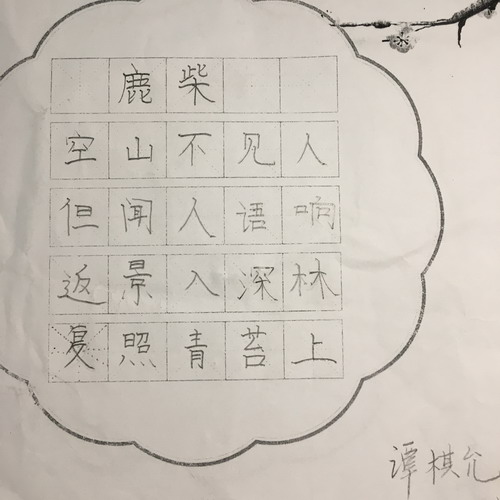 鹿柴
空山不见人
但闻人语响
返景入深林
复照青苔上
谭棋允